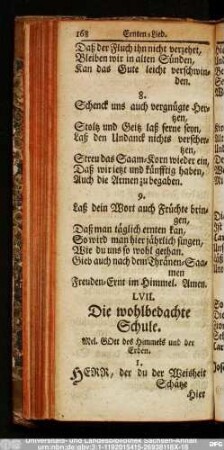 168 Ernten-Lied.
Daß der Fluch ihn nicht verzehrt,
Bleiben wir in alten Sünden,
Kan das Gute leicht verschwin-
den.
8.
Schenck uns auch vergnügte Her-
tzen,
Stoltz und Geitz laß ferne seyn,
Laß den Undanck nichts verscher-
tzen,
Streu das Saam-Korn wieder ein,
Daß wir ietzt und künfftig haben,
Auch die Armen zu begaben.
9.
Laß dein Wort auch Früchte brin-
gen,
Daß man täglich ernten kan,
So wird man hier jährlich singen,
Wie du uns so wohl gethan.
Gieb auch nach dem Thränen-Saa-
men
Freuden-Ernt im Himmel. Amen.
LVII.
Die wohlbedachte
Schule.
Mel. GOtt des Himmels und der
Erden.
1.
HERR, der du der Weisheit
Schätze
Hier
Universitäts- und Landesbibliothek Sachsen-Anhalt